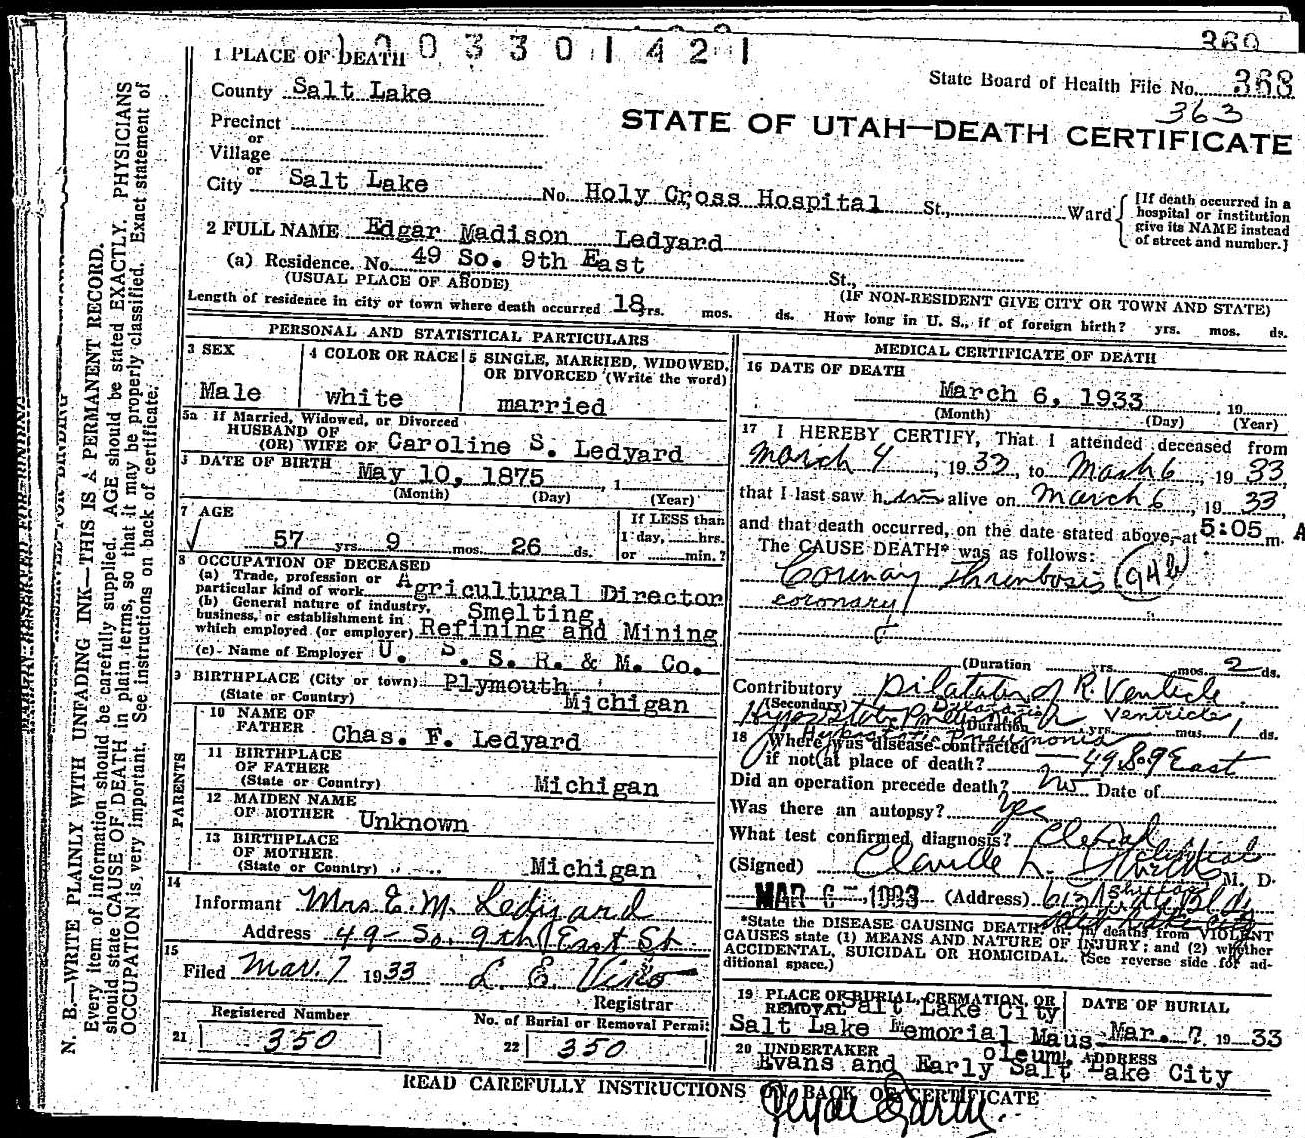 1003301421
360
State Board of Health File No. 368
363
1 PLACE OF DEATH
County Salt Lake
STATE OF UTAH—DEATH CERTIFICATE
Precinct
or
Village
or
City Salt Lake No. Holy Cross Hospital St., Ward
[If death occurred in a hospital or institution give its NAME instead of street and number.]
2 FULL NAME Edgar Madison Ledyard
(a) Residence. No. 49 So. 9th East St.,
(USUAL PLACE OF ABODE) (IF NON-RESIDENT GIVE CITY OR TOWN AND STATE)
Length of residence in city or town where death occurred 18 yrs. mos. ds. How long in U. S., if of foreign birth? yrs. mos. ds.
PERSONAL AND STATISTICAL PARTICULARS
3 SEX
Male
4 COLOR OR RACE
white
5 SINGLE, MARRIED, WIDOWED, OR DIVORCED (Write the word)
married
5a If Married, Widowed, or Divorced
HUSBAND OF
(OR) WIFE OF Caroline S. Ledyard
DATE OF BIRTH May 10, 1875, 1
(Month) (Day) (Year)
7 AGE
57 yrs. 9 mos. 26 ds.
If LESS than
1 day, hrs.
or min.?
8 OCCUPATION OF DECEASED
(a) Trade, profession or particular kind of work Agricultural Director
(b) General nature of industry, business, or establishment in which employed (or employer) Smelting, Refining and Mining
(c) Name of Employer U. S. S. R. & M. Co.
9 BIRTHPLACE (City or town) Plymouth
(State or Country) Michigan
PARENTS
10 NAME OF FATHER Chas. F. Ledyard
11 BIRTHPLACE OF FATHER
(State or Country) Michigan
12 MAIDEN NAME OF MOTHER Unknown
13 BIRTHPLACE OF MOTHER
(State or Country) Michigan
14
Informant Mrs E. M. Ledyard
Address 49 - So. 9th East St.
15
Filed Mar. 7 1933 L. E. Viko
Registrar
Registered Number
21 350
No. of Burial or Removal Permit
22 350
MEDICAL CERTIFICATE OF DEATH
16 DATE OF DEATH
March 6, 1933, 19
(Month) (Day) (Year)
17 I HEREBY CERTIFY, That I attended deceased from
March 4, 1933, to March 6, 1933,
that I last saw h im alive on March 6, 1933,
and that death occurred, on the date stated above, at 5:05 A m.
The CAUSE DEATH* was as follows:
Coronary Thrombosis 94b
coronary
(Duration yrs. mos. 2 ds.
Contributory Dilatation of R. Ventricle
(Secondary) Dilatation R Ventricle
Hypostatic Pneumonia (Duration yrs. mos. 1 ds.
Hypostatic Pneumonia
18 Where was disease contracted
if not at place of death? 49 So 9 East
Did an operation precede death? No Date of
Was there an autopsy? Yes
What test confirmed diagnosis? Clinical
clinical
(Signed) M. D.
MAR 6 - 1933 (Address)
*State the DISEASE CAUSING DEATH, or in deaths from VIOLENT
CAUSES state (1) MEANS AND NATURE OF INJURY; and (2) whether
ACCIDENTAL, SUICIDAL OR HOMICIDAL. (See reverse side for ad-
ditional space.)
19 PLACE OF BURIAL, CREMATION, OR REMOVAL Salt Lake City
Salt Lake Memorial Mausoleum.
DATE OF BURIAL
Mar. 7, 1933
20 UNDERTAKER ADDRESS
Evans and Early Salt Lake City
READ CAREFULLY INSTRUCTIONS ON BACK OF CERTIFICATE
N. B.—WRITE PLAINLY WITH UNFADING INK—THIS IS A PERMANENT RECORD.
Every item of information should be carefully supplied. AGE should be stated EXACTLY. PHYSICIANS
should state CAUSE OF DEATH in plain terms, so that it may be properly classified. Exact statement of
OCCUPATION is very important. See instructions on back of certificate.